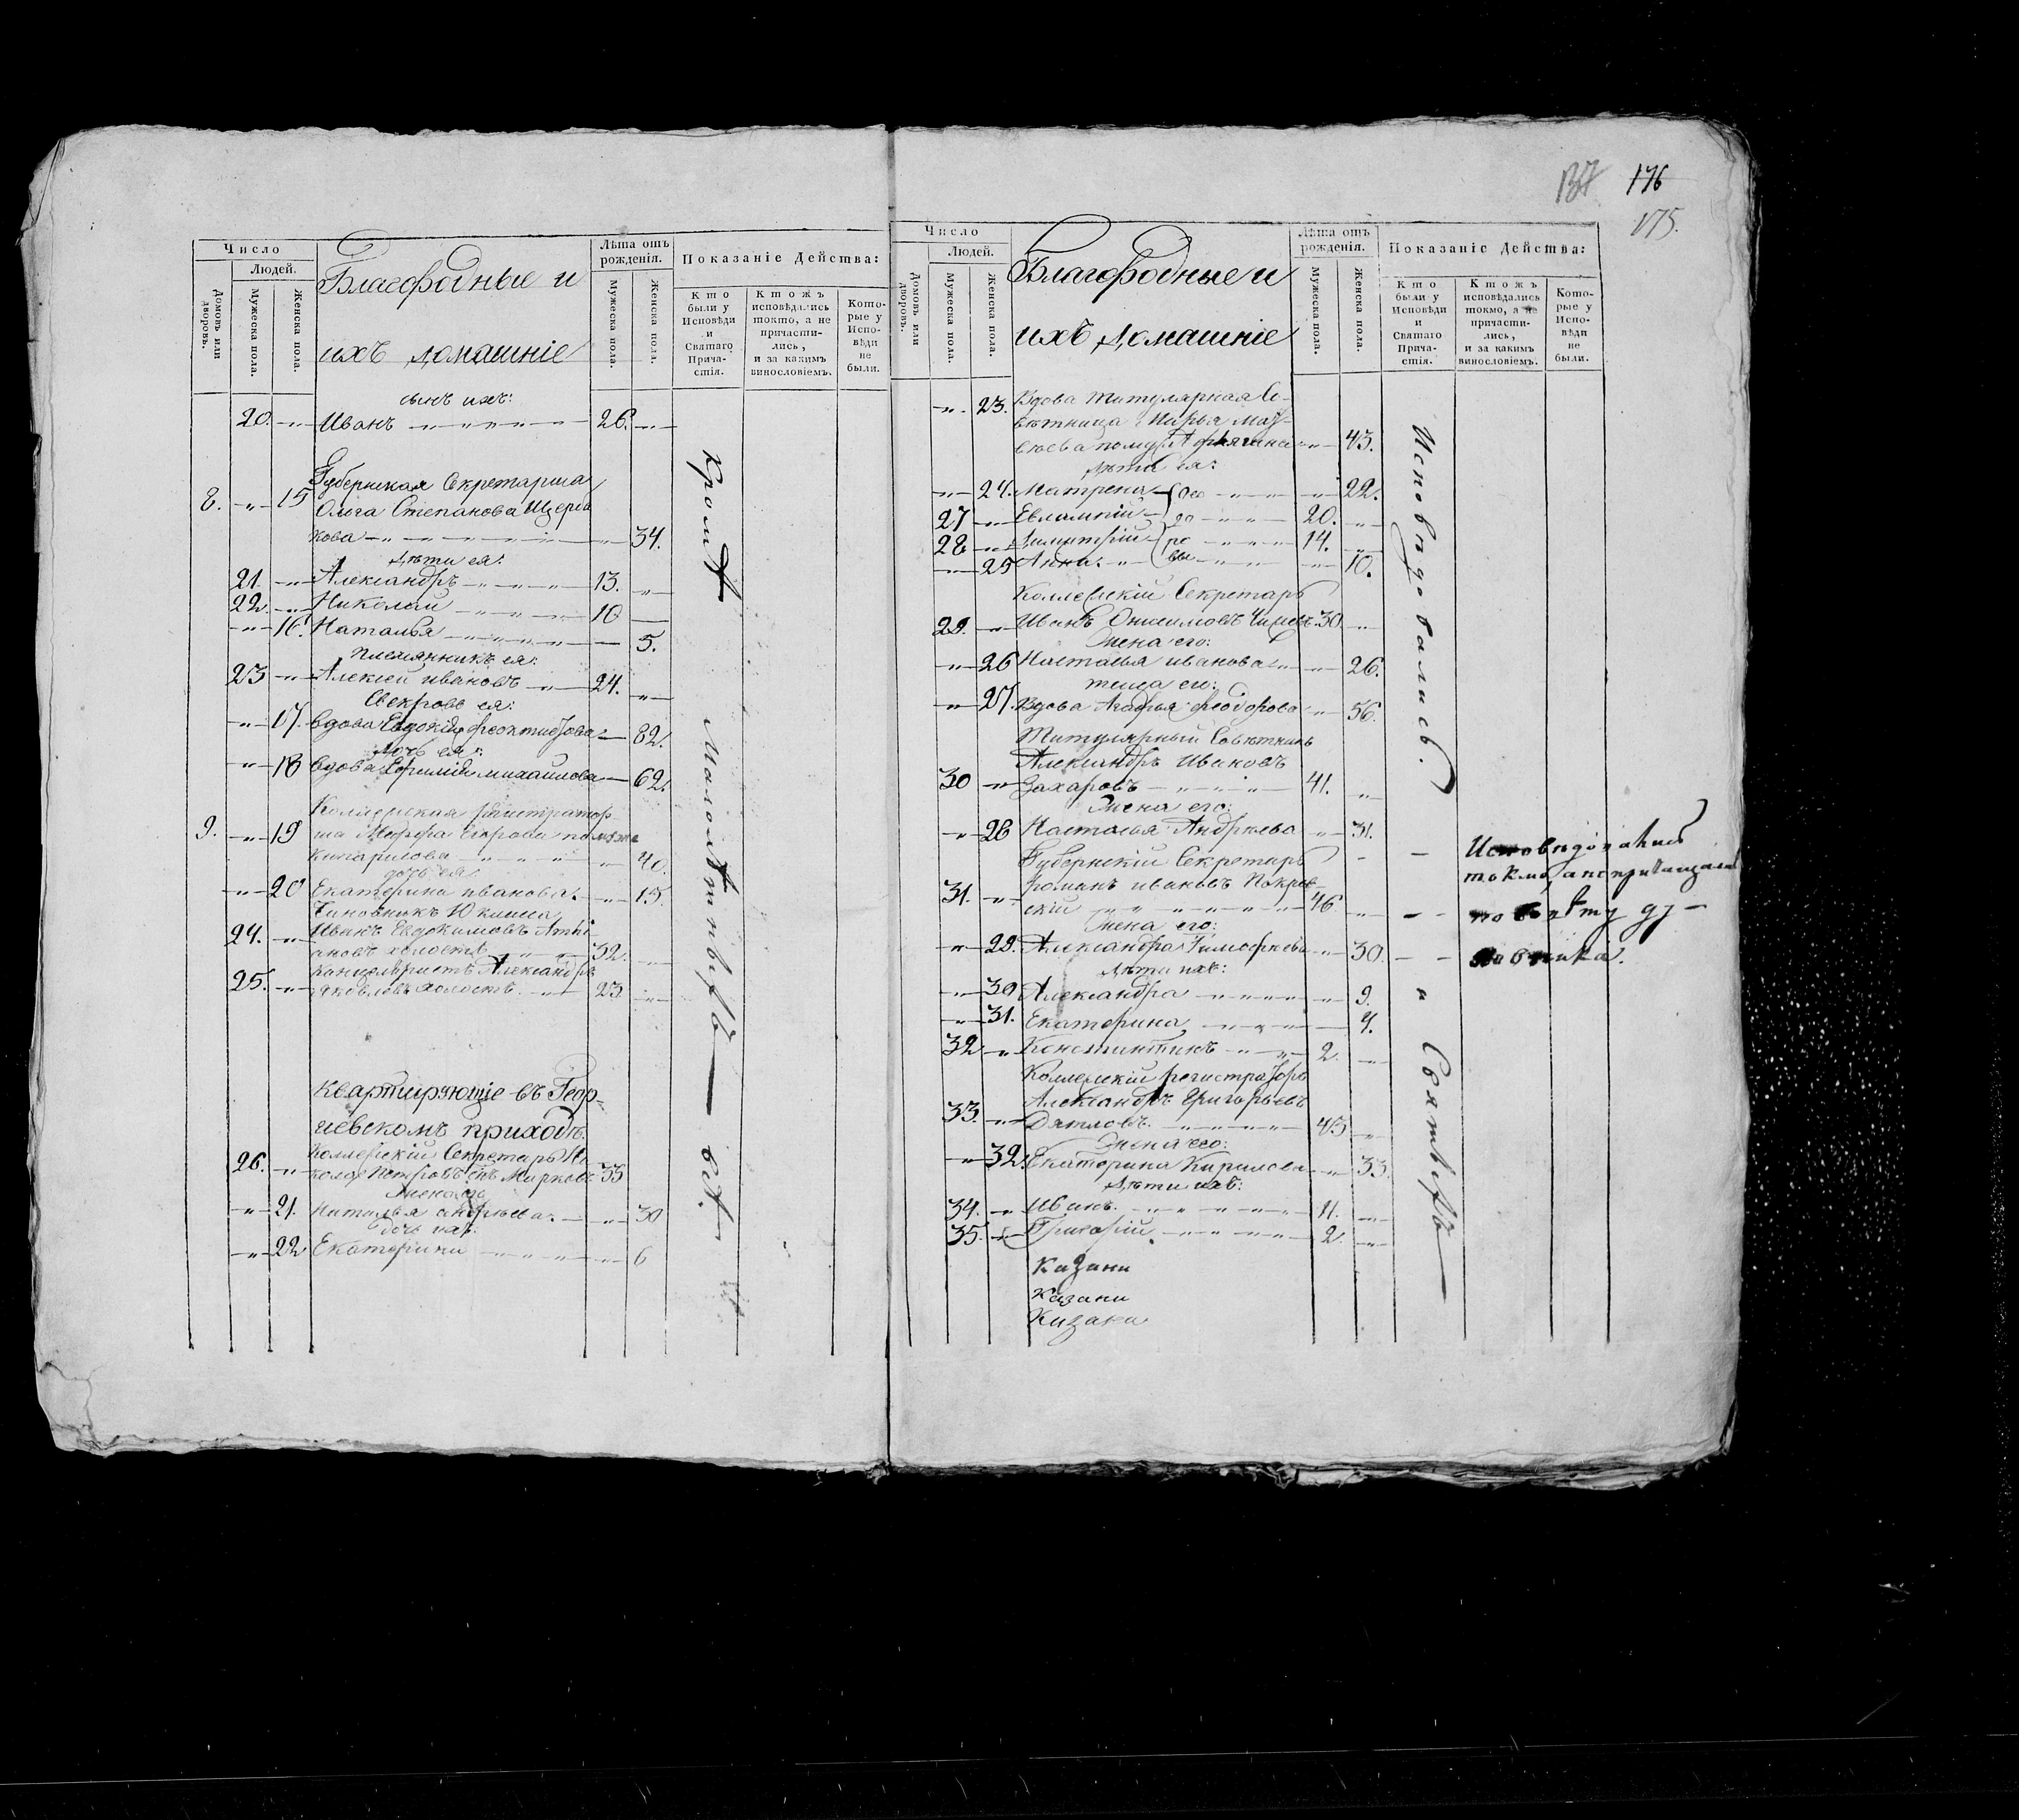 137 176
175.
Число
Людей.
Домовъ или дворовъ.
Мужеска пола.
Женска пола.
Благородные и
ихъ домашніе
Лѣта отъ рожденія.
Мужеска пола.
Женска пола.
Показаніе Действа:
Кто были у Исповѣди и Святаго Прича-стія.
Ктожъ исповѣдались токто, а не причасти-лись, и за какимъ винословіемъ.
Кото-рые у Испо-вѣди не были.
сынъ ихъ:
20. Иванъ 26.
Губернская Секретарша
8. 15 Ольга Степанова Щерба
кова 34.
Дѣти ея:
21. Александръ 13.
22. Николай 10
16. Наталья 5.
Племянникъ ея:
23 Алексей Ивановъ 24.
Свекровь ея:
17. вдова Евдокія Феоктистова 82.
Дочь ея:
18 вдова Ефимія михайлова 62.
9. 19
40.
дочь ея
20 Екатерина иванова 15.
Чиновникъ
24. Иванъ Евдокимовъ
холостъ 32.
Канцеляристъ Александръ
25. Яковлевъ холостъ 23
Квартирующіе въ Геор-
гіевскомъ приходѣ.
Коллежскій Секретарь Ни
26. колай Петровъ 33
Жена его
21. Наталья андрѣева 30
дочь ихъ:
22 Екатерина 6
Кромѣ Малолѣтныхъ всѣ
Число
Людей.
Домовъ или дворовъ.
Мужеска пола.
Женска пола.
Благородные и
ихъ домашніе
Лѣта отъ рожденія.
Мужеска пола.
Женска пола.
Показаніе Действа:
Кто были у Исповѣди и Святаго Прича-стія.
Ктожъ исповѣдались токмо, а не причасти-лись, и за какимъ винословіемъ.
Кото-рые у Испо-вѣди не были.
23. Вдова Титулярная Со-
вѣтница Марья Мат-
43.
Дѣти ея:
24. Матрена 22.
27 Евлампій 20.
28 Димитрій 14.
25 Анна. 10.
Коллежскій Секретарь
29. Иванъ Онисимовъ 30
Жена его:
26 Наталья иванова 26.
теща его:
27. Вдова Агафья феодорова 56.
Титулярный Совѣтникъ
Александръ Ивановъ
30 Захаровъ 41.
Жена его:
28 Наталья Андрѣева 31.
Губернскій Секретарь
31. романъ ивановъ Покров-
скій 46
Жена его:
29. Александра Тимофѣева 30.
Дѣти ихъ:
30 Александра 9.
31. Екатерина
32 Константинъ 2.
Коллежскій регистраторъ
Александръ Григорьевъ
33. Дятловъ. 43
Жена его:
32. Екатерина Кирилова 33.
Дѣти ихъ:
34. Иванъ. 11.
35. Григорій 2.
Казани
Казани
Казани
Исповѣдовались.
Святыхъ
Исповѣдовались
токмо, а не причащались
по совѣту ду-
ховника.